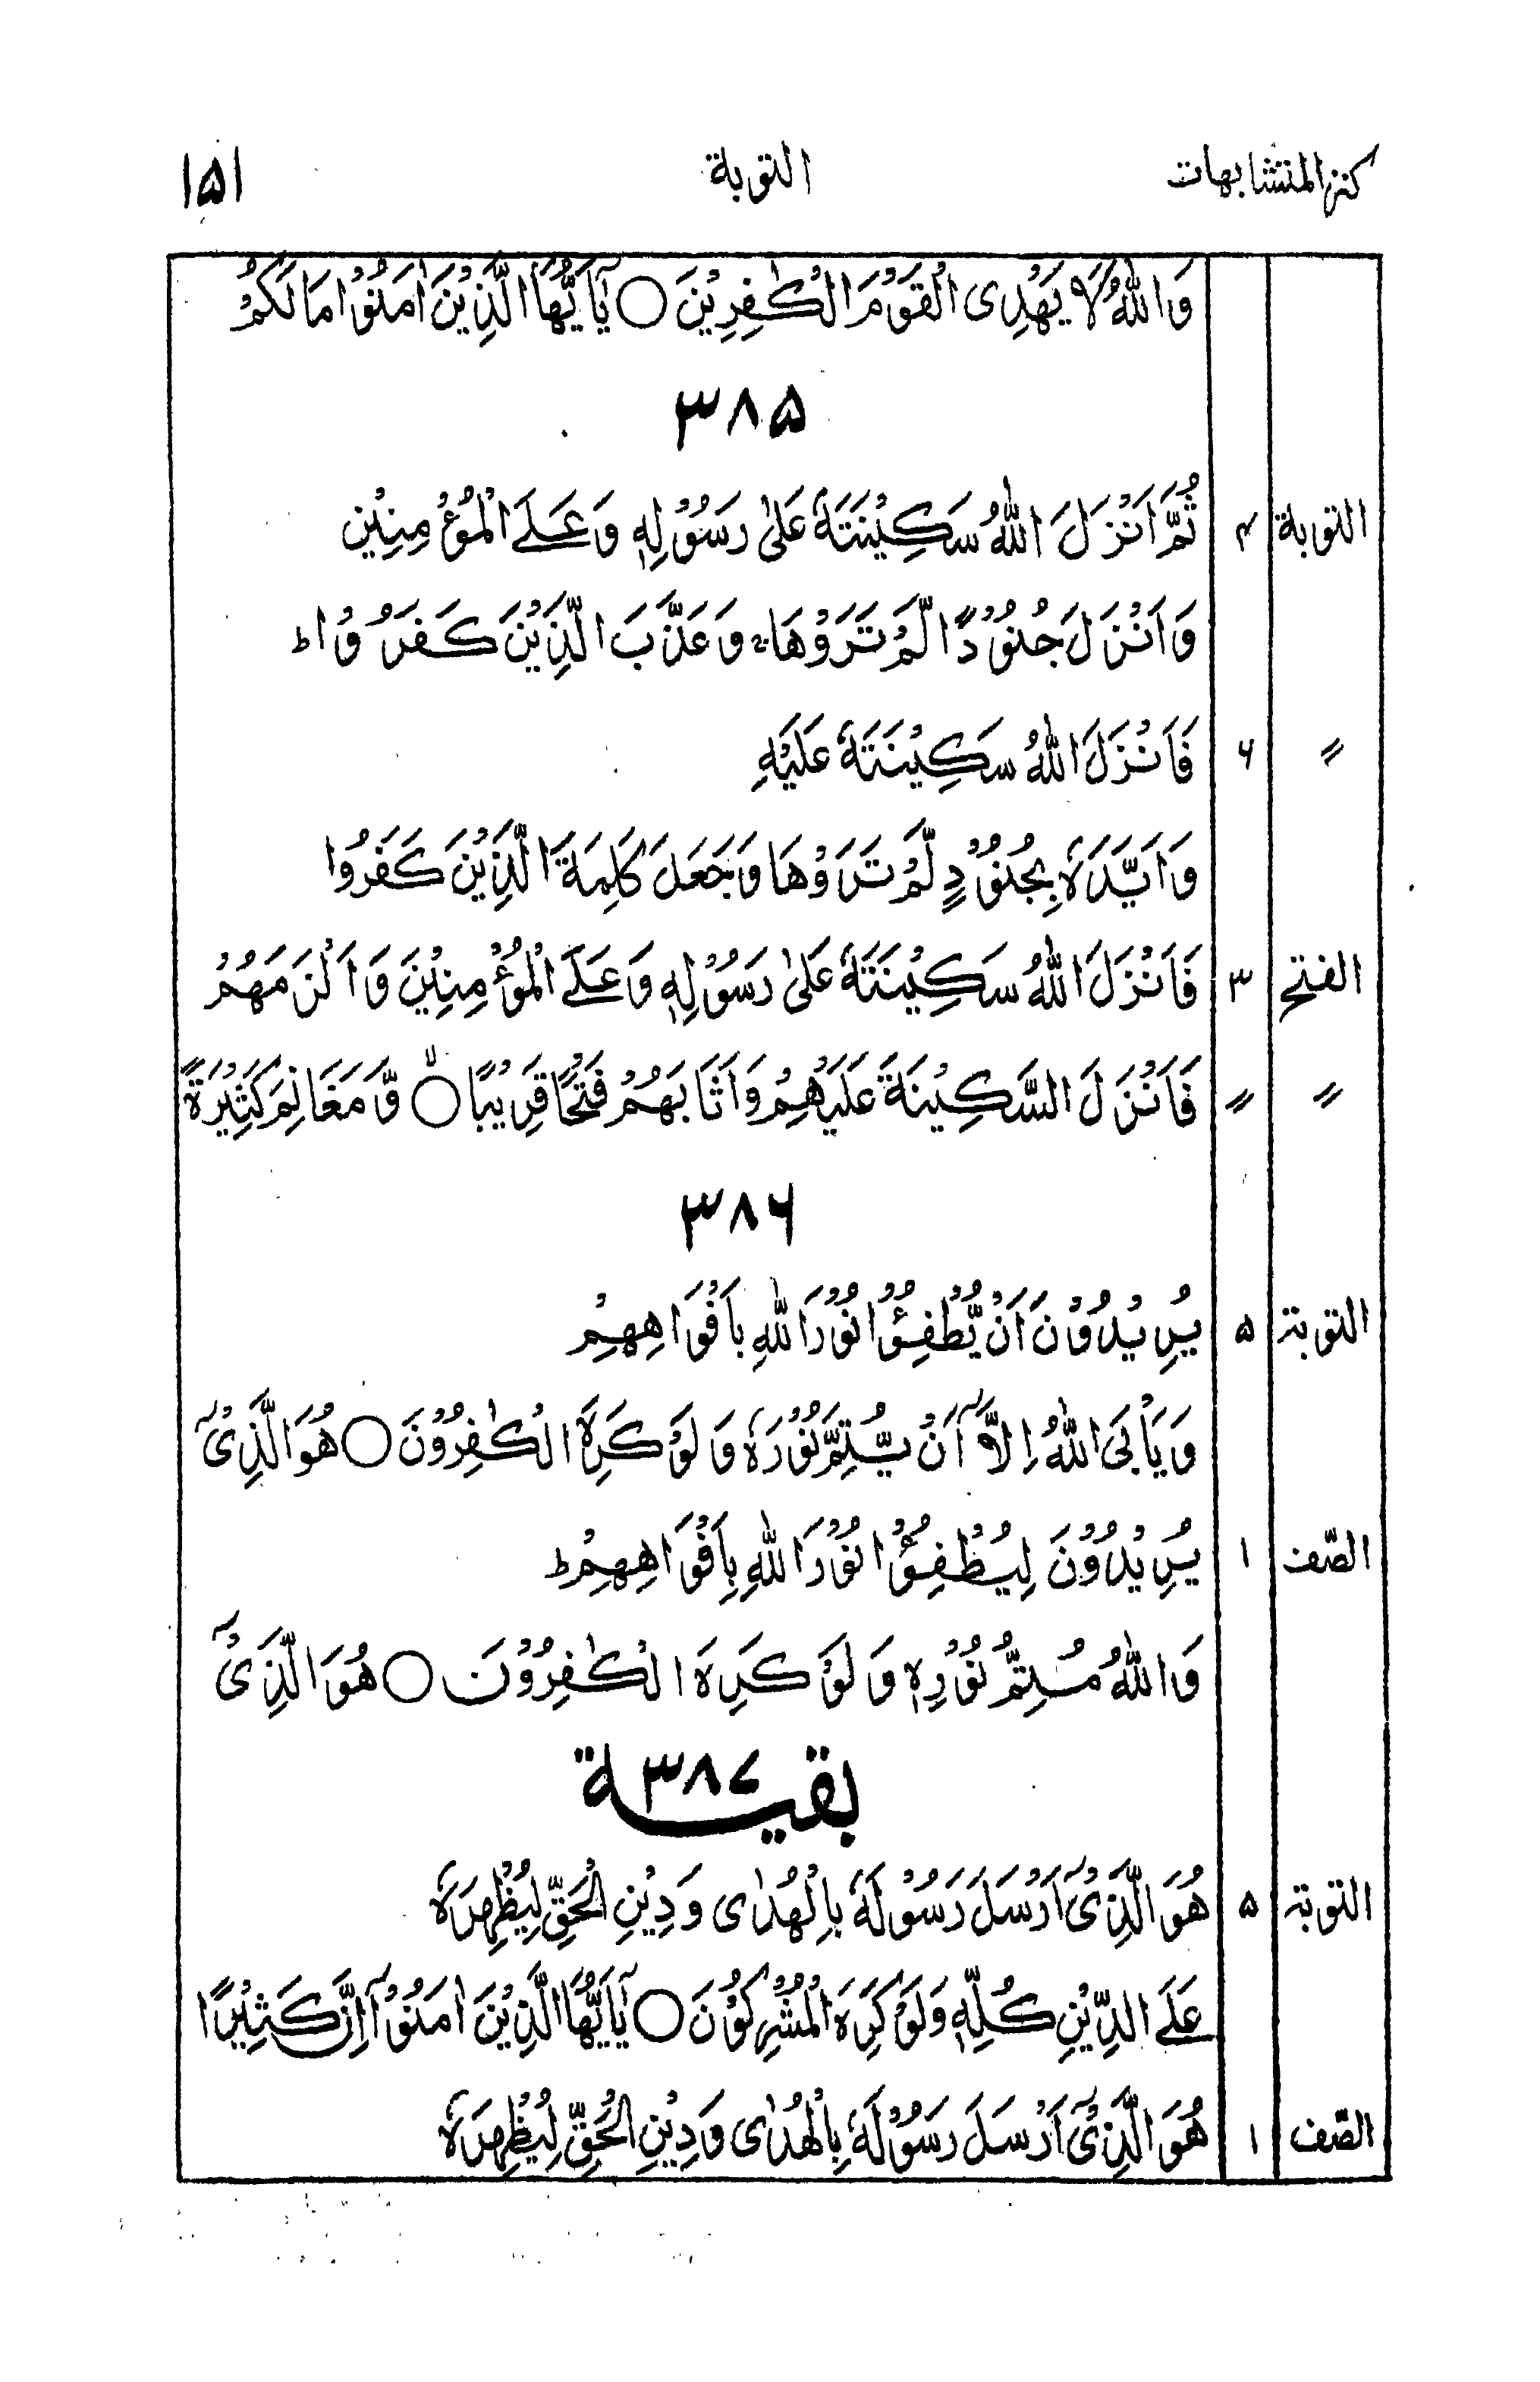 كنز المتشابهات التوبة ١۵١
وَاللّٰهُ لَا يَهْدِى الْقَوْمَ الْكٰفِرِيْنَ ○ يٰٓاَيُّهَا الَّذِيْنَ اٰمَنُوْا مَا لَكُمْ
٣٨۵
التوبة ۴ ثُمَّ اَنْزَلَ اللّٰهُ سَكِيْنَتَهٗ عَلٰى رَسُوْلِهٖ وَعَلَى الْمُؤْمِنِيْن
وَاَنْزَلَ جُنُوْدًا لَّمْ تَرَوْهَا ۚ وَعَذَّبَ الَّذِيْنَ كَفَرُوْا ط
〃 ۶ فَاَنْزَلَ اللّٰهُ سَكِيْنَتَهٗ عَلَيْهِ
وَاَيَّدَهٗ بِجُنُوْدٍ لَّمْ تَرَوْهَا وَجَعَلَ كَلِمَةَ الَّذِيْنَ كَفَرُوا
الفتح ٣ فَاَنْزَلَ اللّٰهُ سَكِيْنَتَهٗ عَلٰى رَسُوْلِهٖ وَعَلَى الْمُؤْمِنِيْنَ وَاَلْزَمَهُمْ
〃 〃 فَاَنْزَلَ السَّكِيْنَةَ عَلَيْهِمْ وَاَثَابَهُمْ فَتْحًا قَرِيْبًا ○ۙ وَّمَغَانِمَ كَثِيْرَةً
٣٨۶
التوبة ۵ يُرِيْدُوْنَ اَنْ يُّطْفِئُوْا نُوْرَ اللّٰهِ بِاَفْوَاهِهِمْ
وَيَاْبَى اللّٰهُ اِلَّآ اَنْ يُّتِمَّ نُوْرَهٗ وَلَوْ كَرِهَ الْكٰفِرُوْنَ ○ هُوَ الَّذِىْٓ
الصّف ١ يُرِيْدُوْنَ لِيُطْفِئُوْا نُوْرَ اللّٰهِ بِاَفْوَاهِهِمْ ط
وَاللّٰهُ مُتِمُّ نُوْرِهٖ وَلَوْ كَرِهَ الْكٰفِرُوْنَ ○ هُوَ الَّذِىْٓ
بقية ٣٨٧
التوبة ۵ هُوَ الَّذِىْٓ اَرْسَلَ رَسُوْلَهٗ بِالْهُدٰى وَدِيْنِ الْحَقِّ لِيُظْهِرَهٗ
عَلَى الدِّيْنِ كُلِّهٖ وَلَوْ كَرِهَ الْمُشْرِكُوْنَ ○ يٰٓاَيُّهَا الَّذِيْنَ اٰمَنُوْٓا اِنَّ كَثِيْرًا
الصّف ١ هُوَ الَّذِىْٓ اَرْسَلَ رَسُوْلَهٗ بِالْهُدٰى وَدِيْنِ الْحَقِّ لِيُظْهِرَهٗ